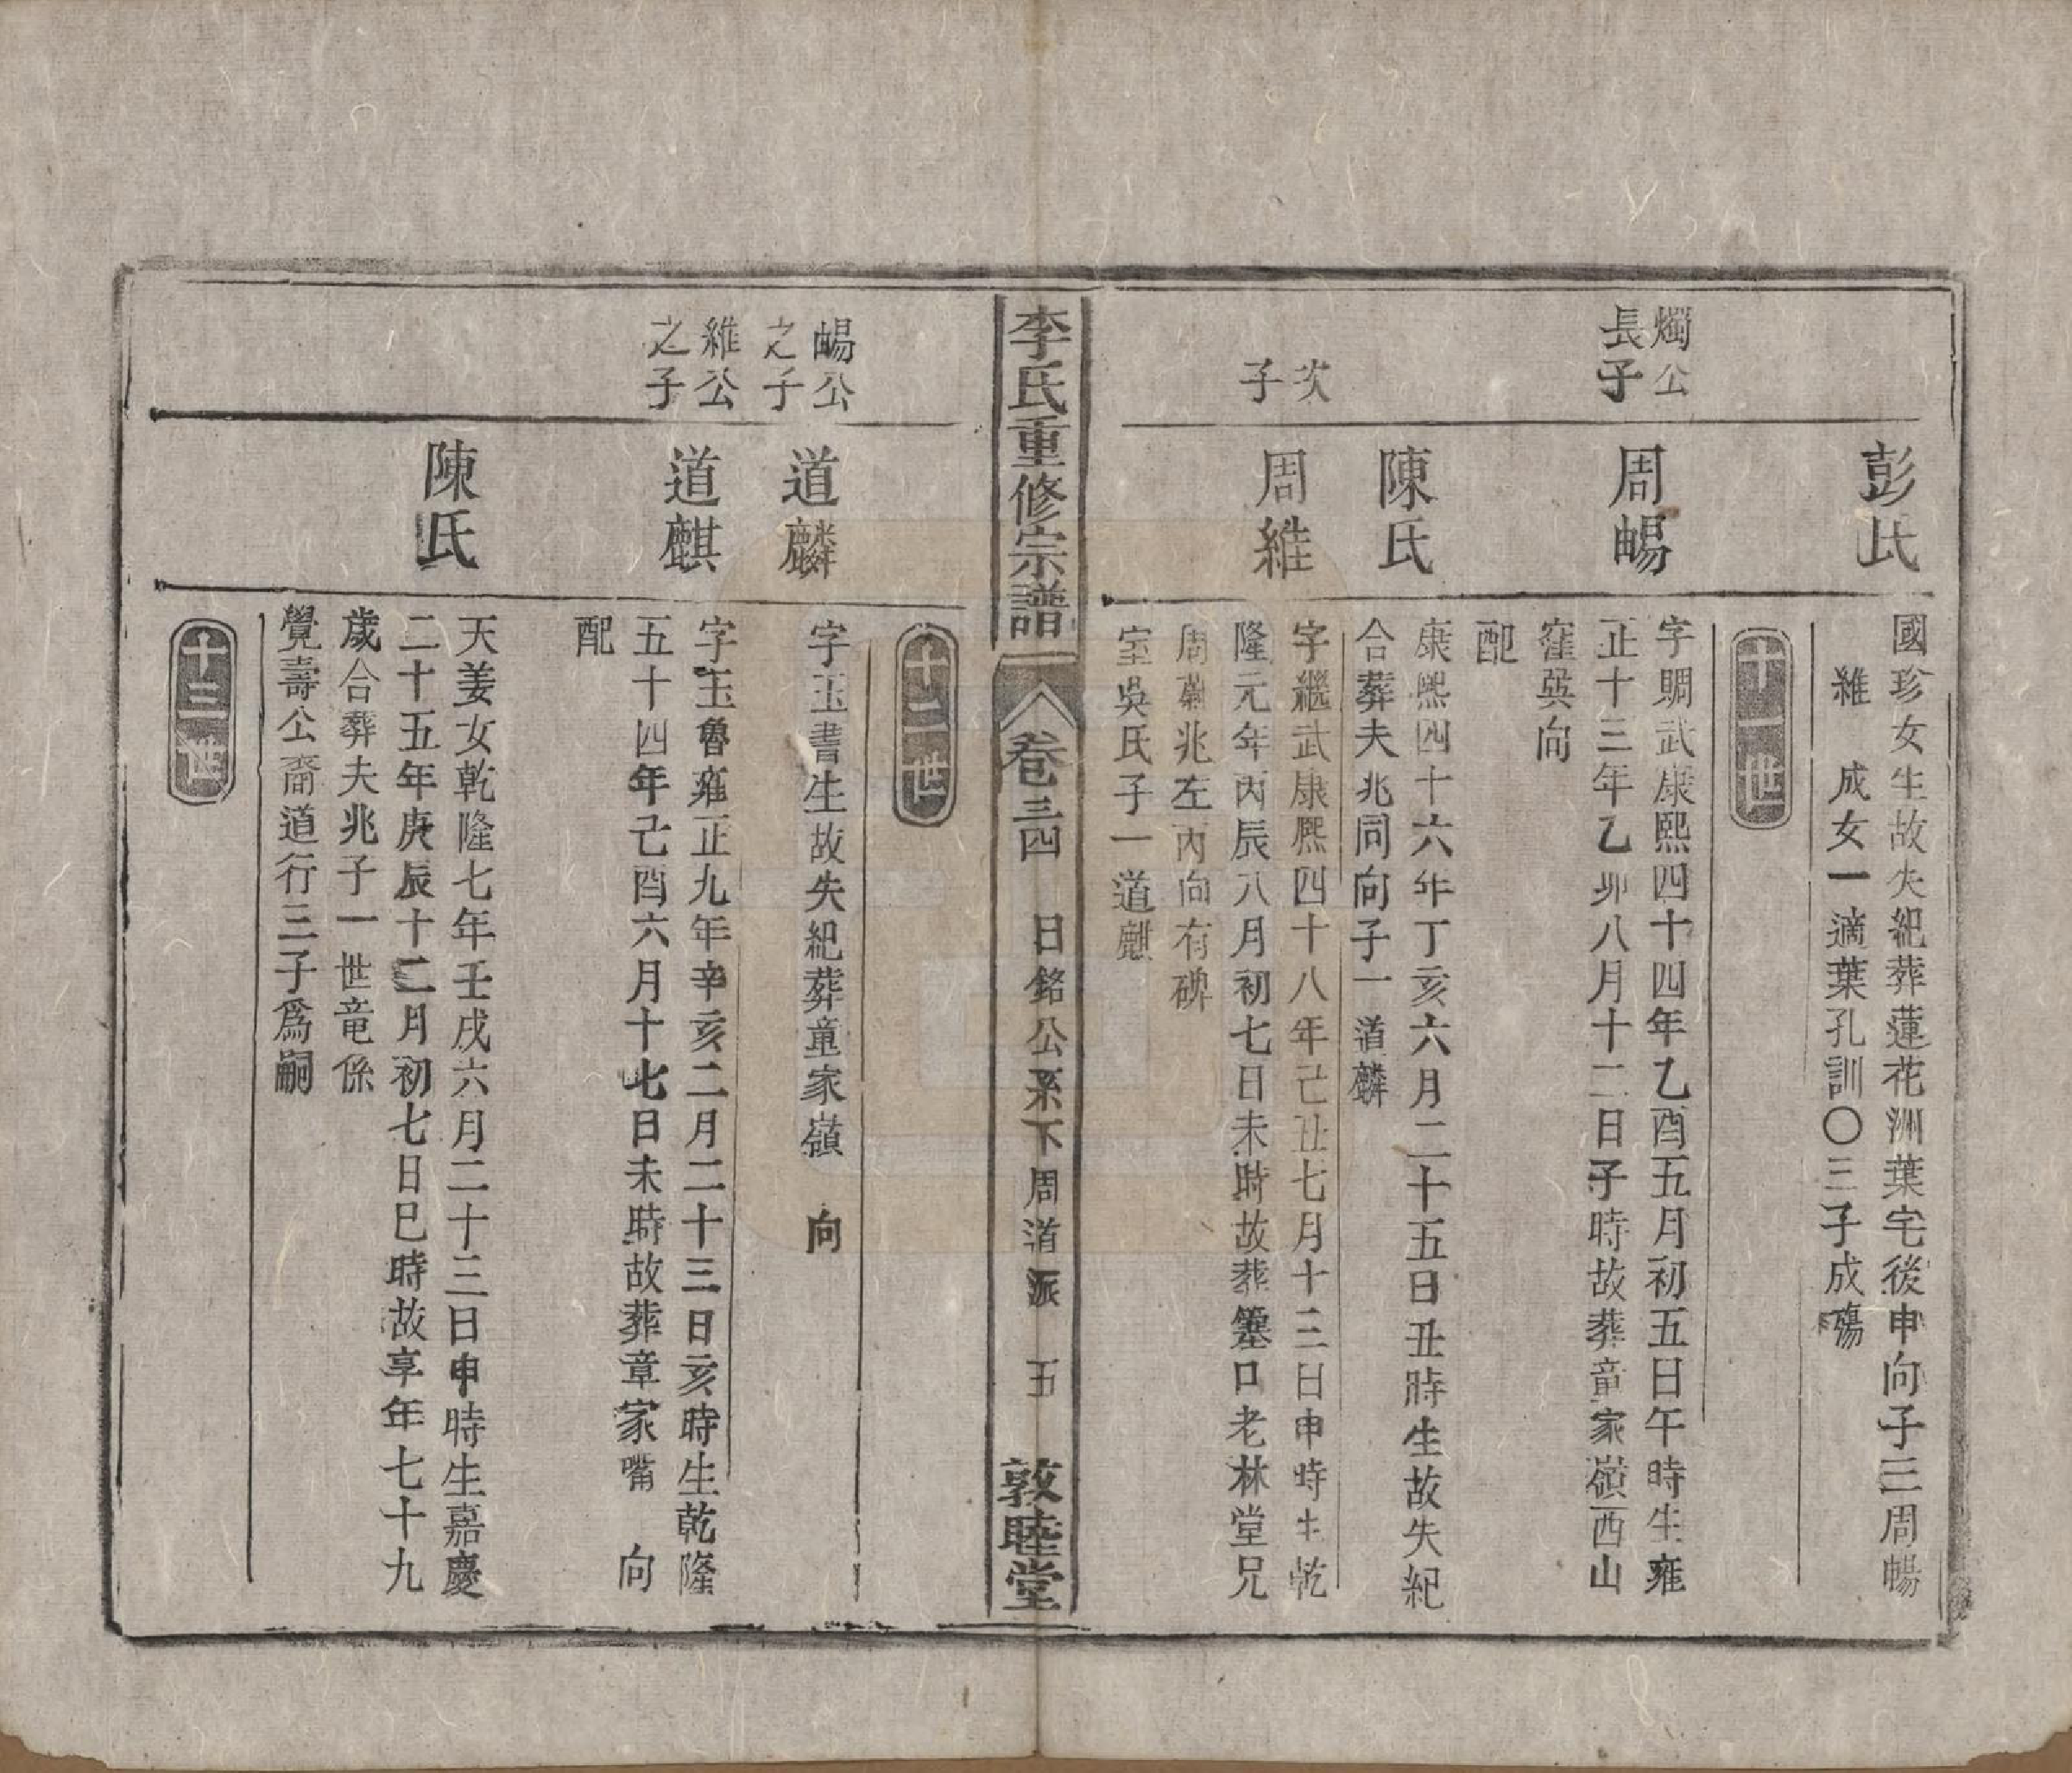 彭氏
國珍女生故失紀葬蓮花洲葉宅後申向子三周暢
維 成女一適葉孔訓〇三子成殤
十一世
燭公
長子
周暢
字賙武康熙四十四年乙酉五月初五日午時生雍
正十三年乙卯八月十二日子時故葬童家嶺西山
窪巽向
配
陳氏
康熙四十六年丁亥六月二十五日丑時生故失紀
合葬夫兆同向子一道麟
次
子
周維
字繼武康熙四十八年己丑七月十三日申時生乾
隆元年丙辰八月初七日未時故葬籊口老林堂兄
周蘭兆左丙向有碑
室吳氏子一道麒
李氏重修宗譜 卷三四 日銘公系下周道派 五 敦睦堂
十二世
暢公
之子
道麟
字玉書生故失紀葬童家嶺 向
維公
之子
道麒
字玉魯雍正九年辛亥二月二十三日亥時生乾隆
五十四年己酉六月十七日未時故葬章家嘴 向
配
陳氏
天姜女乾隆七年壬戌六月二十三日申時生嘉慶
二十五年庚辰十二月初七日巳時故享年七十九
歲合葬夫兆子一世竜係
覺壽公裔道行三子爲嗣
十三世